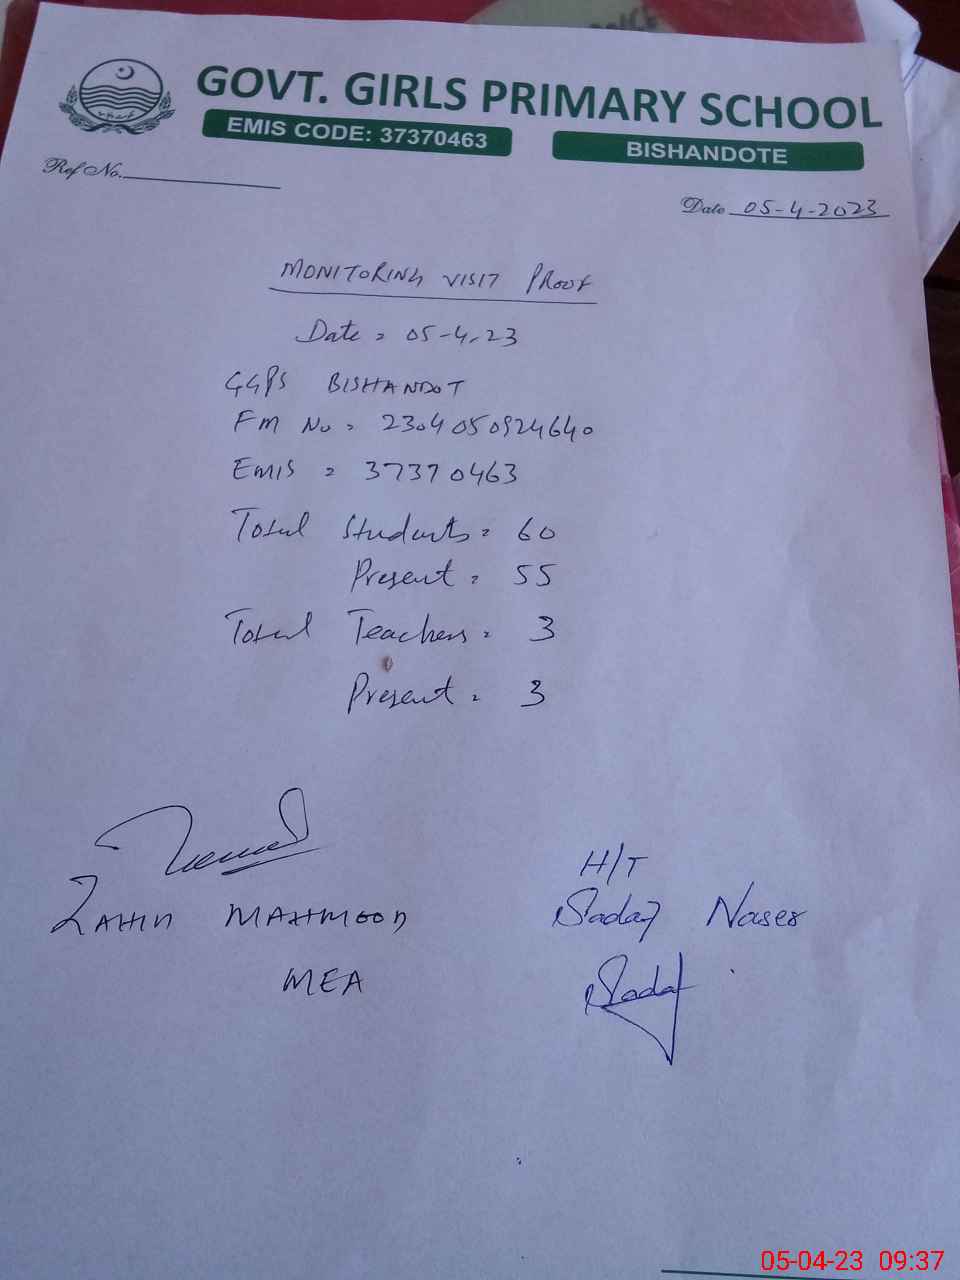 GOVT. GIRLS PRIMARY SCHOOL
EMIS CODE: 37370463
BISHANDOTE
Ref No.
Date 05-4-2023
MONITORING VISIT PROOF
Date = 05-4-23
GGPS BISHANDOT
FM No = 2304050924640
EMIS = 37370463
Total Students = 60
Present = 55
Total Teachers = 3
Present = 3
H/T
MAHMOOD
Sadaf Naser
MEA
Sadaf
05-04-23 09:37